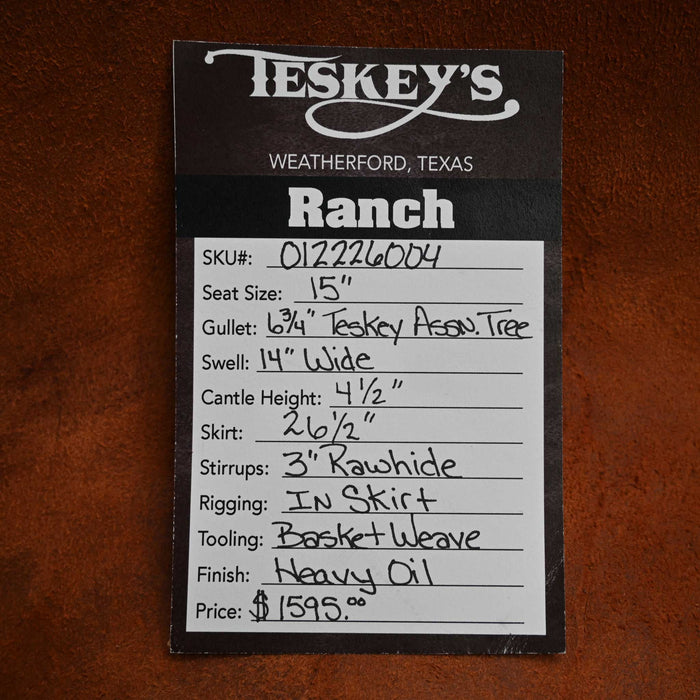 TESKEY'S
WEATHERFORD, TEXAS
Ranch
SKU#: 012226004
Seat Size: 15"
Gullet: 6 3/4" Teskey Assn. Tree
Swell: 14" Wide
Cantle Height: 4 1/2"
Skirt: 26 1/2"
Stirrups: 3" Rawhide
Rigging: In Skirt
Tooling: Basket Weave
Finish: Heavy Oil
Price: $1595.00